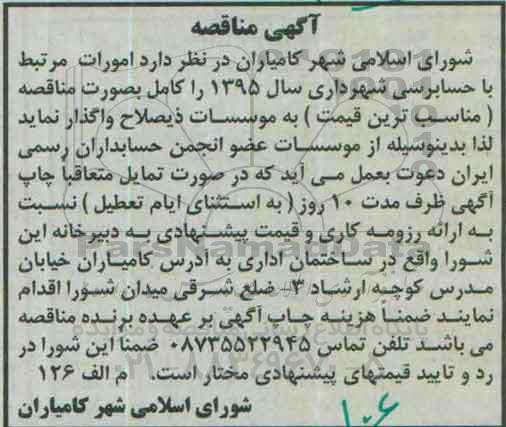 آگهی مناقصه
شورای اسلامی شهر کامیاران در نظر دارد امورات مرتبط
با حسابرسی شهرداری سال ۱۳۹۵ را کامل بصورت مناقصه
( مناسب ترین قیمت ) به موسسات ذیصلاح واگذار نماید
لذا بدینوسیله از موسسات عضو انجمن حسابداران رسمی
ایران دعوت بعمل می آید که در صورت تمایل متعاقباً چاپ
آگهی ظرف مدت ۱۰ روز ( به استثنای ایام تعطیل ) نسبت
به ارائه رزومه کاری و قیمت پیشنهادی به دبیرخانه این
شورا واقع در ساختمان اداری به آدرس کامیاران خیابان
مدرس کوچه ارشاد ۳- ضلع شرقی میدان شورا اقدام
نمایند ضمناً هزینه چاپ آگهی بر عهده برنده مناقصه
می باشد تلفن تماس ۰۸۷۳۵۵۲۲۹۴۵ ضمنا این شورا در
رد و تایید قیمتهای پیشنهادی مختار است. م الف ۱۲۶
شورای اسلامی شهر کامیاران
۱۰۶
ParsNamadData